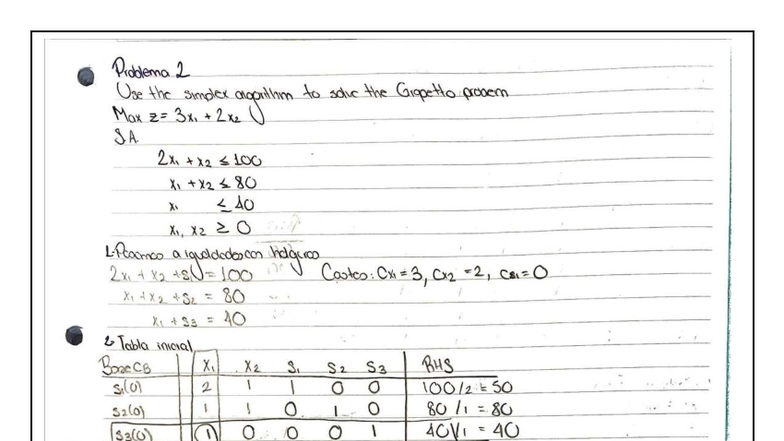 Problema 2
Use the simplex algorithm to solve the Giapetto problem
Max z = 3x₁ + 2x₂
S.A.
2x₁ + x₂ ≤ 100
x₁ + x₂ ≤ 80
x₁ ≤ 40
x₁, x₂ ≥ 0
1. Pasamos a igualdades con holgura
2x₁ + x₂ + s₁ = 100 Costos: Cx₁ = 3, Cx₂ = 2, Cs₁ = 0
x₁ + x₂ + s₂ = 80
x₁ + s₃ = 40
2. Tabla inicial
Base CB X₁ X₂ S₁ S₂ S₃ RHS
S₁(0) 2 1 1 0 0 100/2 = 50
S₂(0) 1 1 0 1 0 80/1 = 80
S₃(0) 1 0 0 0 1 40/1 = 40